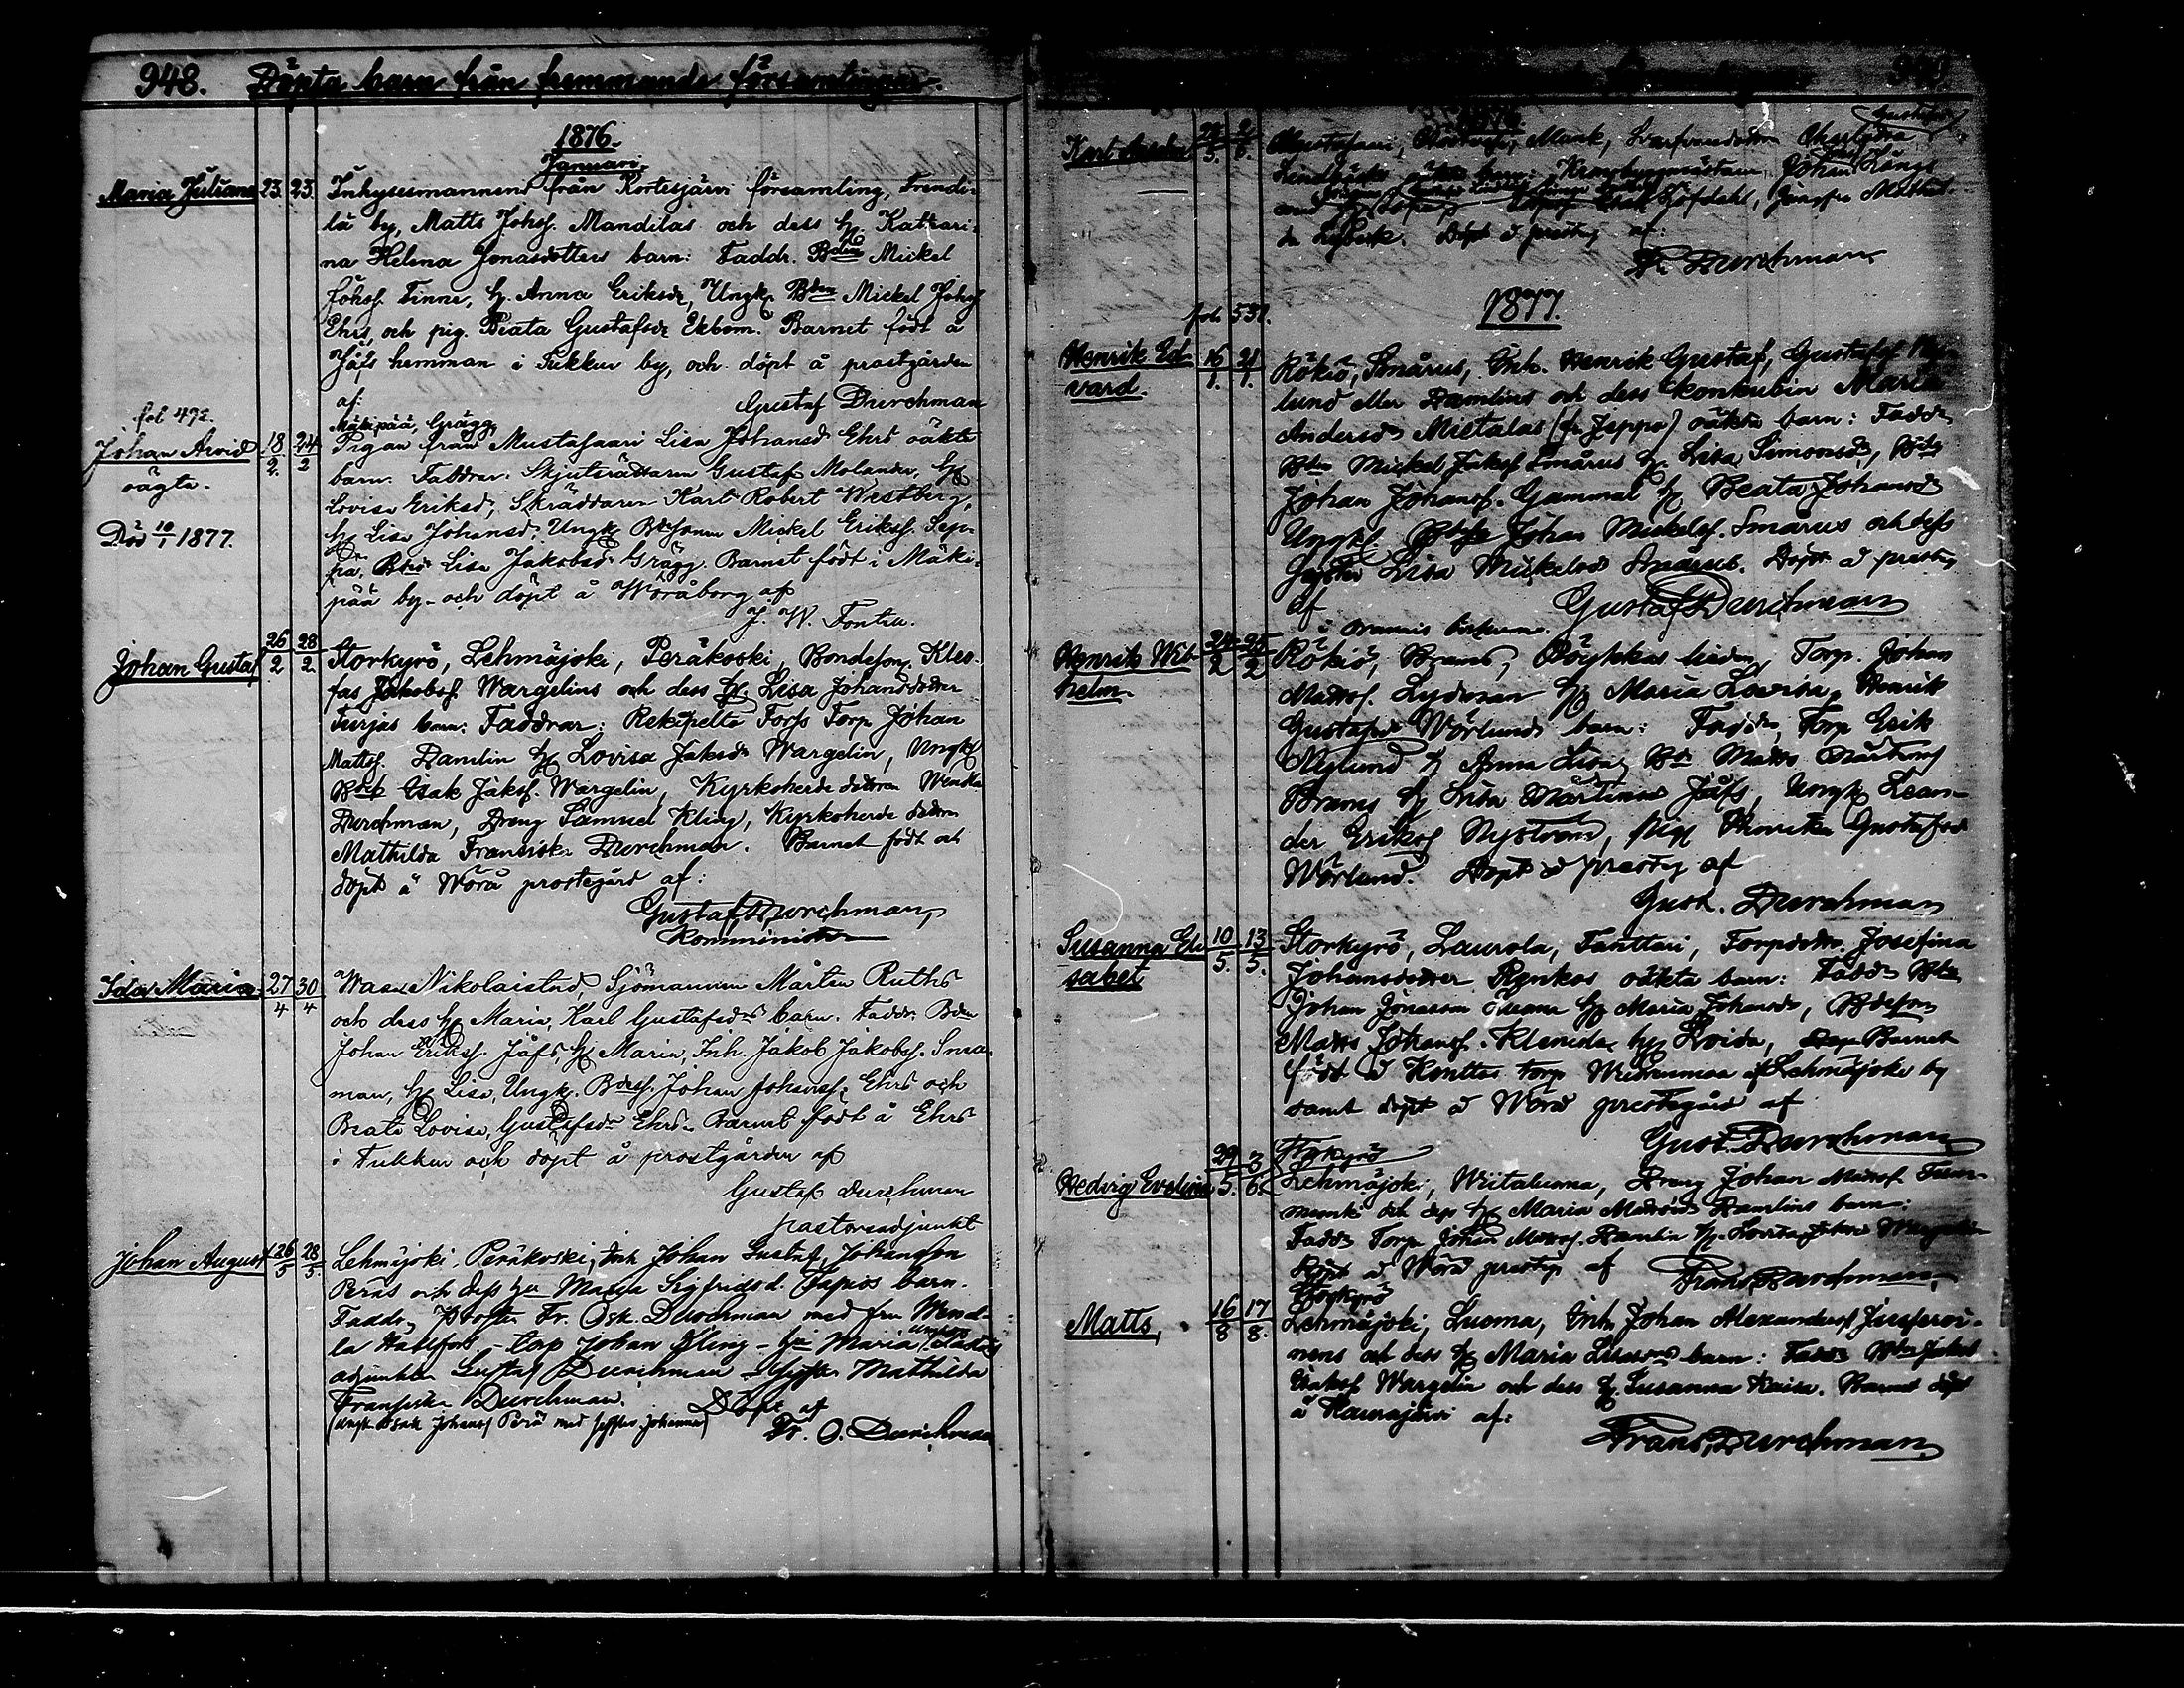 948. Döpta barn från fremmande församlingar.
1876.
Januari.
Maria Juliana 23. 23. Inhysesmannens från Kortesjärvi församling, Frendi-
lä by, Matts Johss. Mandilas och dess h. Kathari-
na Helena Jonasdotters barn: Faddr. Bdn Mickel
Johss. Finne, h. Anna Eriksdr, Ungk. Bdsn Mickel Johss
Ehrs, och pig. Beata Gustafsdr Ekbom. Barnet födt å
Jåfs hemman i Tukkur by, och döpt å prostgården
af: Gustaf Durchman
fol 492. Mäkipää, Grägg
Johan Arvid 18/2. 24/2 Pigan från Mustasaari Lisa Johansd. Ehrs oäkta
oägta. barn. Faddrar: Skjutsrättaren Gustaf Molander, h.
Lovisa Eriksd, Skräddaren Karl Robert Westberg,
Död 10/1 1877. h. Lisa Johansd, Ungk. Bdsonen Mickel Erikss. Sep-
pä, Lisa Jakobsd Grägg. Barnet födt i Mäki-
pää by och döpt å Wöråborg af
J. W. Fontell.
Johan Gustaf 26/2. 28/2. Storkyrö, Lehmäjoki, Peräkoski, Bondeson Kleo-
fas Jakobss. Wargelins och dess h. Lisa Johansdotter
Turjas barn: Faddrar: Rekipelto Forss Torp. Johan
Mattss. Ramlin h. Lovisa Jakosdr Wargelin, Ungk.
Isak Jakss. Wargelin, Kyrkoherde dottren Wendla
Durchman, Dreng Samuel Kling, Kyrkoherde dottren
Mathilda Fransiska Durchman. Barnet födt och
döpt å Wörå prostegård af:
Gustaf Durchman,
Komminister
Ida Maria 27/4 30/4 Wasa Nikolaistad, Sjömannen Mårten Ruths
och dess h. Maria, Karl Gustafsdrs barn. Faddr. Bdn
Johan Erikss. Jåfs, h. Maria, Inh. Jakob Jakobss. Snea-
man, h. Lisa, Ungk. Bdss. Johan Johanss. Ehrs och
Beata Lovisa, Gustafsdr Ehrs. Barnet födt å Ehrs
i Tukkur och döpt å prostgården af
Gustaf Durchman
pastorsadjunkt
Johan August 26/5 28/5. Lehmäjoki, Peräkoski, Inh Johan Gustaf Johansson
Peräs och dess hu Maria Sigfridsd. barn.
Faddr, Prosten Fr. Osk. Durchman med fru Wend-
la Hällfors - torp Johan Kling - hu Maria
adjunkten Gustaf Durchman - Mathilda
Fransiska Durchman. Döpt af
(Ungk Isak Johanss Perä med Johanna) Fr. O. Durchman
Karl
Mustasaari, Munk,
oäkta barn: Johan Längs
Jungfru Mathil-
da Döpt å prosteg af:
Fr. Durchman.
fol. 531. 1877.
Henrik Ed- 16/1. 21/1. Rökiö, Smårus, Inh. Henrik Gustaf, Gustafss
vard. lund eller Ramlins och dess konkubin Maria
Andersdr Mietalas (fr. Jeppo) oäkta barn: Faddr
Bdn Mickel Jakss Smårus h. Lisa Simonsd, Bdn
Johan Johanss. Gammal h. Beata Johansd
Ungkl. Johan Mickelss. Smårus och dess
syster Lisa Mickelsd Smårus. Döpt å prosteg
af Gustaf Durchman
Henrik Wil- 24/2 25/2 Rökiö, Brams, Torp. Johan
helm. Mattss. Lydman h. Maria Lovisa, Henrik
Gustafsd Wörlunds barn: Faddr, Torp Erik
Nylund h. Anna Lisa, Bd Matts Mårtens
Brams h. Lisa Mårtensd Jåfs, Ungk Lean-
der Erikss Nyström, pig Henrika Gustafsd
Wörlund. Döpt å prosteg af
Gust. Durchman
Susanna Eli- 10/5. 13/5. Storkyrö, Laurola, Fanttari, Torpdottr. Josefina
sabet Johansdotter Renkos oäkta barn: Faddr Bdn
Johan Jonasson Luoma h. Maria Johansdr, Bdeson
Matts Johanss. Klemeda h. Lovisa, Barnet
födt å Konttas torp af Lehmäjoki by
samt döpt å Wörå prostegård af
Gust. Durchman
Storkyrö
Hedvig Evelina 29/5. 3/6. Lehmäjoki, Wiitaluoma, Dreng Johan Mattss. Tam-
minski och dess h. Maria Mattsd Ramlins barn:
Faddr Torp. Johan Mattss. Ramlin h. Lovisa
Döpt å Wörå prosteg af Frans Durchman,
Storkyrö
Matts, 16/8 17/8. Lehmäjoki, Luoma, Inh Johan Alexanders
nens och dess h. Maria barn: Faddr Bdn Jakob
Isakss Wargelin och dess h. Susanna Kaisa. Barnet döpt
å Kaurajärvi af:
Frans Durchman